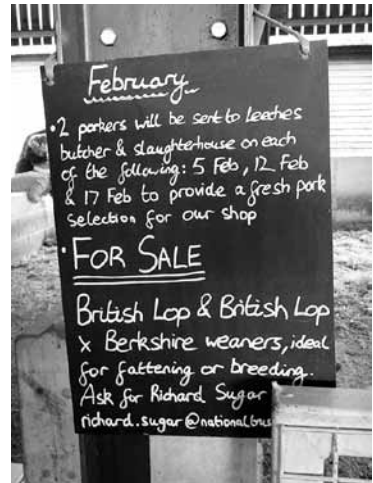 February
• 2 porkers will be sent to Leeches
butcher & slaughterhouse on each
of the following: 5 Feb, 12 Feb
& 17 Feb to provide a fresh pork
selection for our shop
• FOR SALE
British Lop & British Lop
x Berkshire weaners, ideal
for fattening or breeding.
Ask for Richard Sugar